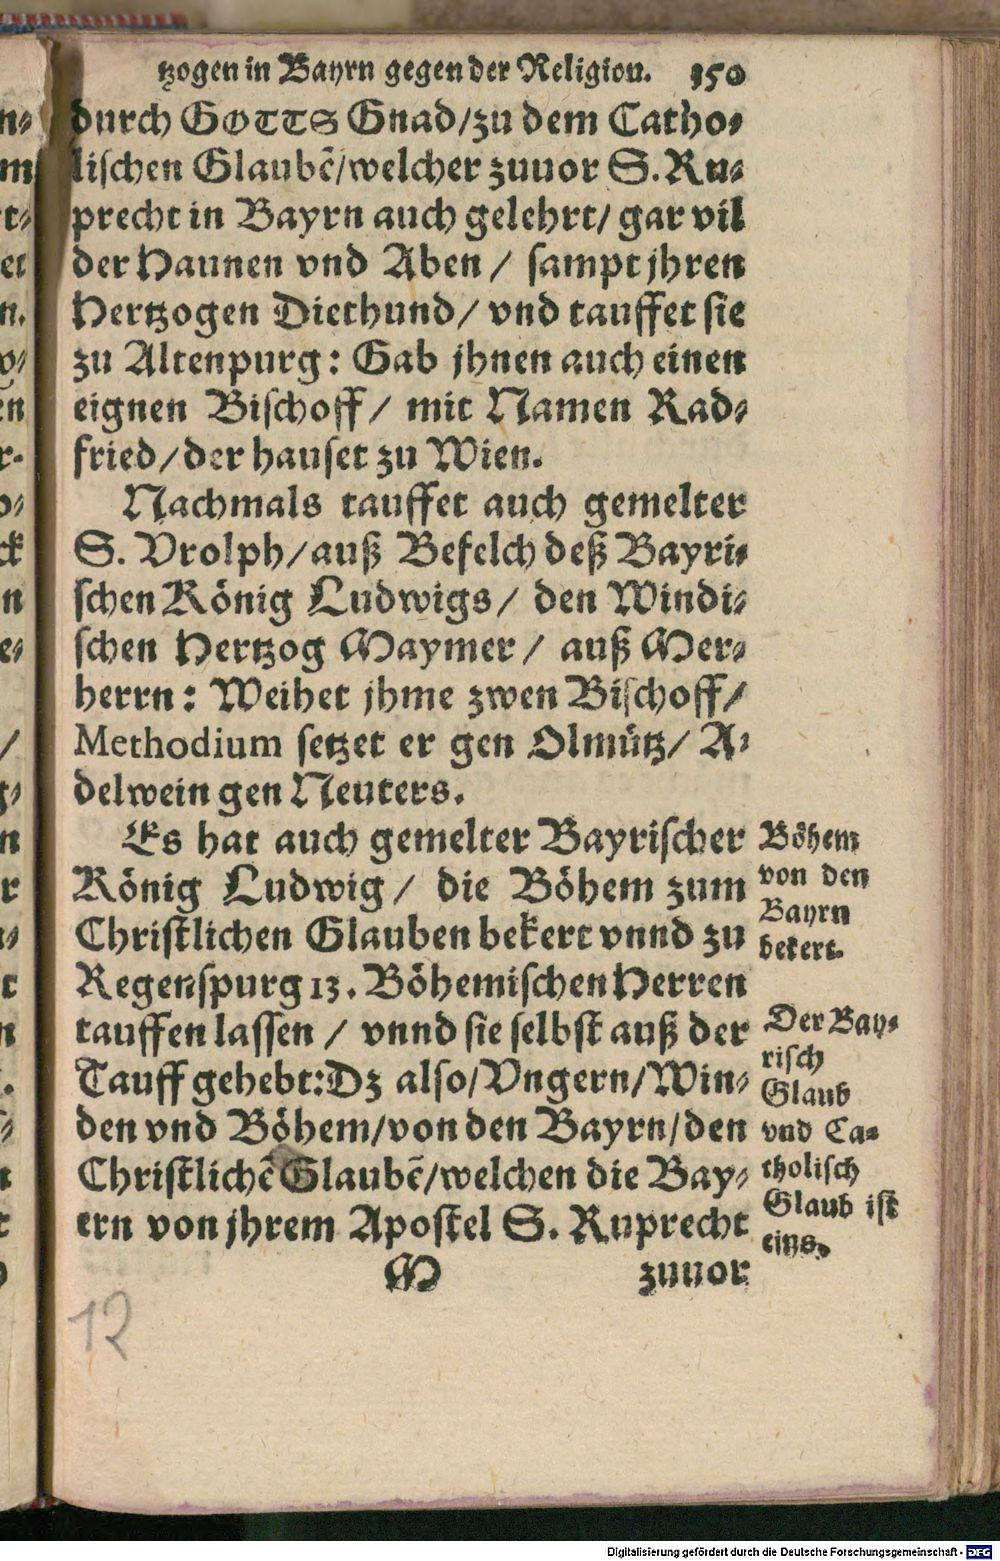 tzogen in Bayrn gegen der Religion. 150
durch GOTTS Gnad/zu dem Catho-
lischen Glaubẽ/welcher zuuor S. Ru-
precht in Bayrn auch gelehrt/ gar vil
der Haunen vnd Aben / sampt jhren
Hertzogen Diethund/ vnd tauffet sie
zu Altenpurg: Gab jhnen auch einen
eignen Bischoff/ mit Namen Rad-
fried/der hauset zu Wien.
Nachmals tauffet auch gemelter
S. Vrolph/auß Befelch deß Bayri-
schen König Ludwigs/ den Windi-
schen Hertzog Maymer/ auß Mer-
herrn: Weihet jhme zwen Bischoff/
Methodium setzet er gen Olmütz/ A-
delwein gen Neuters.
Es hat auch gemelter Bayrischer
König Ludwig/ die Böhem zum
Christlichen Glauben bekert vnnd zu
Regenspurg 13. Böhemischen Herren
tauffen lassen / vnnd sie selbst auß der
Tauff gehebt:Dz also/Vngern/Win-
den vnd Böhem/von den Bayrn/den
Christlichẽ Glaubẽ/welchen die Bay-
ern von jhrem Apostel S. Ruprecht
M zuuor
Böhem
von den
Bayrn
bekert.
Der Bay-
risch
Glaub
vnd Ca-
tholisch
Glaub ist
eins.
12
Digitalisierung gefördert durch die Deutsche Forschungsgemeinschaft - DFG